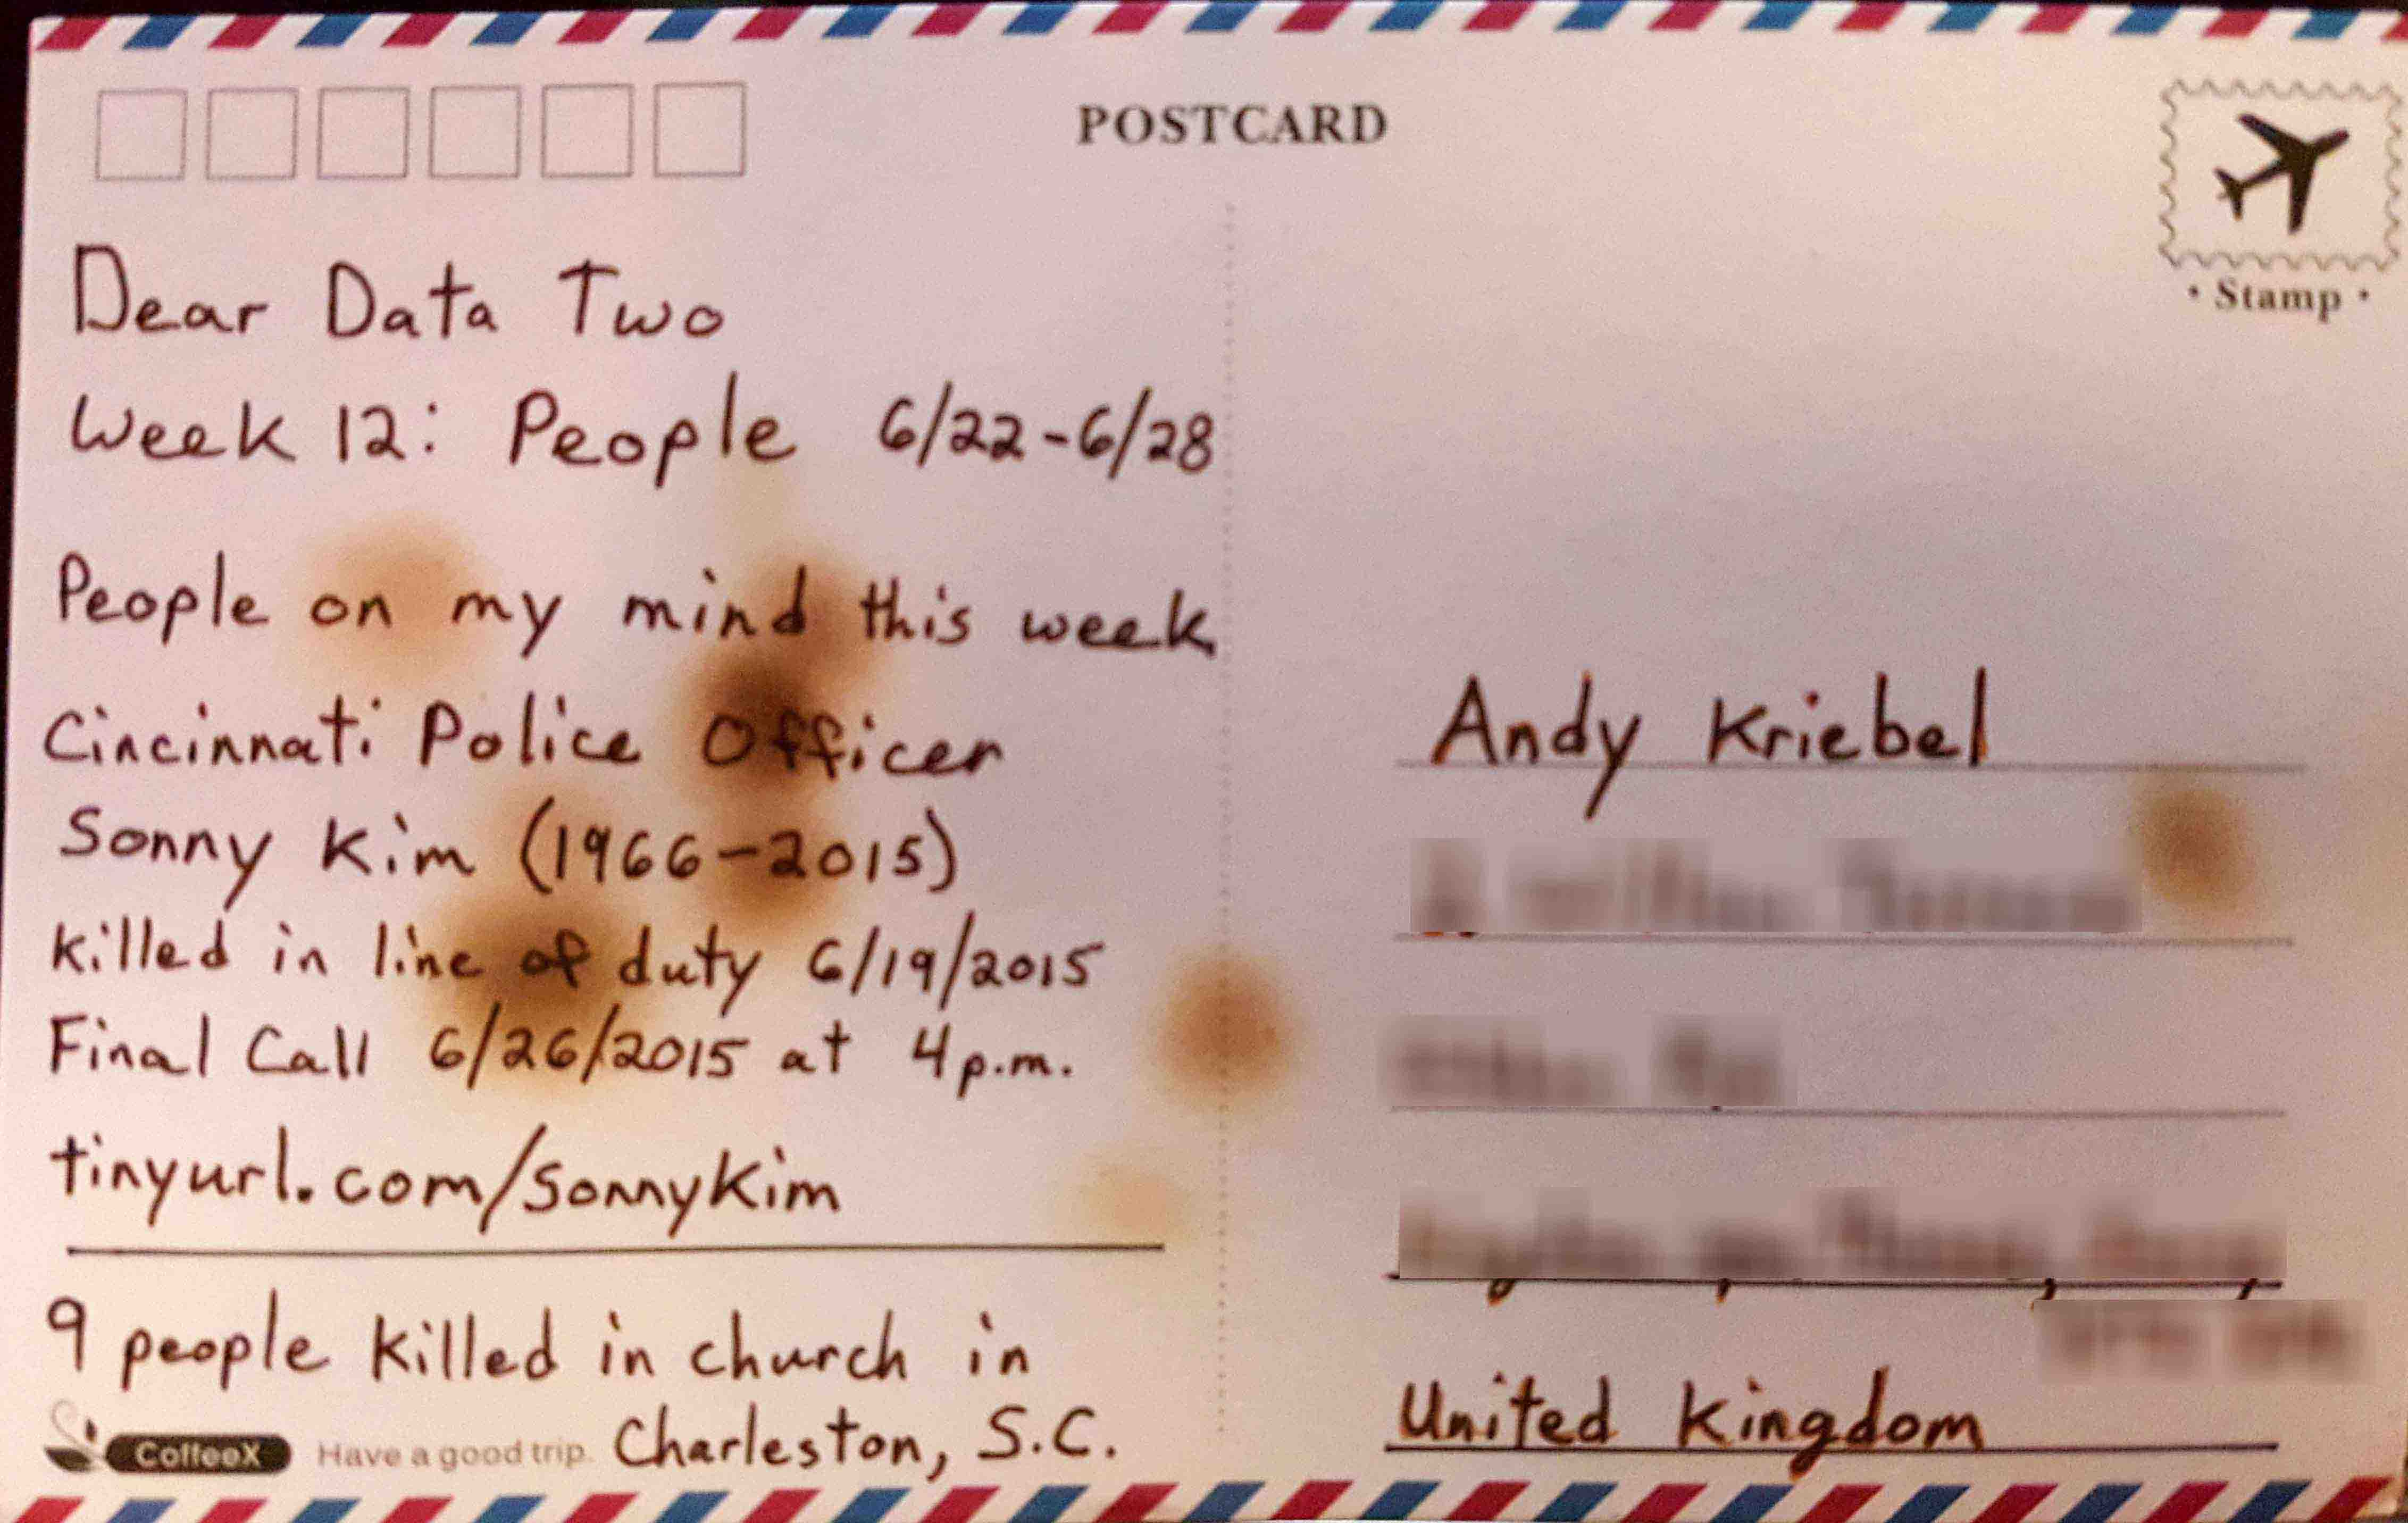 POSTCARD
• Stamp •
Dear Data Two
Week 12: People 6/22-6/28
People on my mind this week
Cincinnati Police Officer
Sonny Kim (1966-2015)
Killed in line of duty 6/19/2015
Final Call 6/26/2015 at 4p.m.
tinyurl.com/sonnykim
9 people killed in church in
Charleston, S.C.
CoffeeX Have a good trip.
Andy Kriebel
United Kingdom